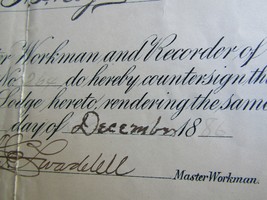 Workman and Recorder of
No. 266 do hereby countersign th
Lodge hereto, rendering the same
day of December 1886
Swaddell
Master Workman.